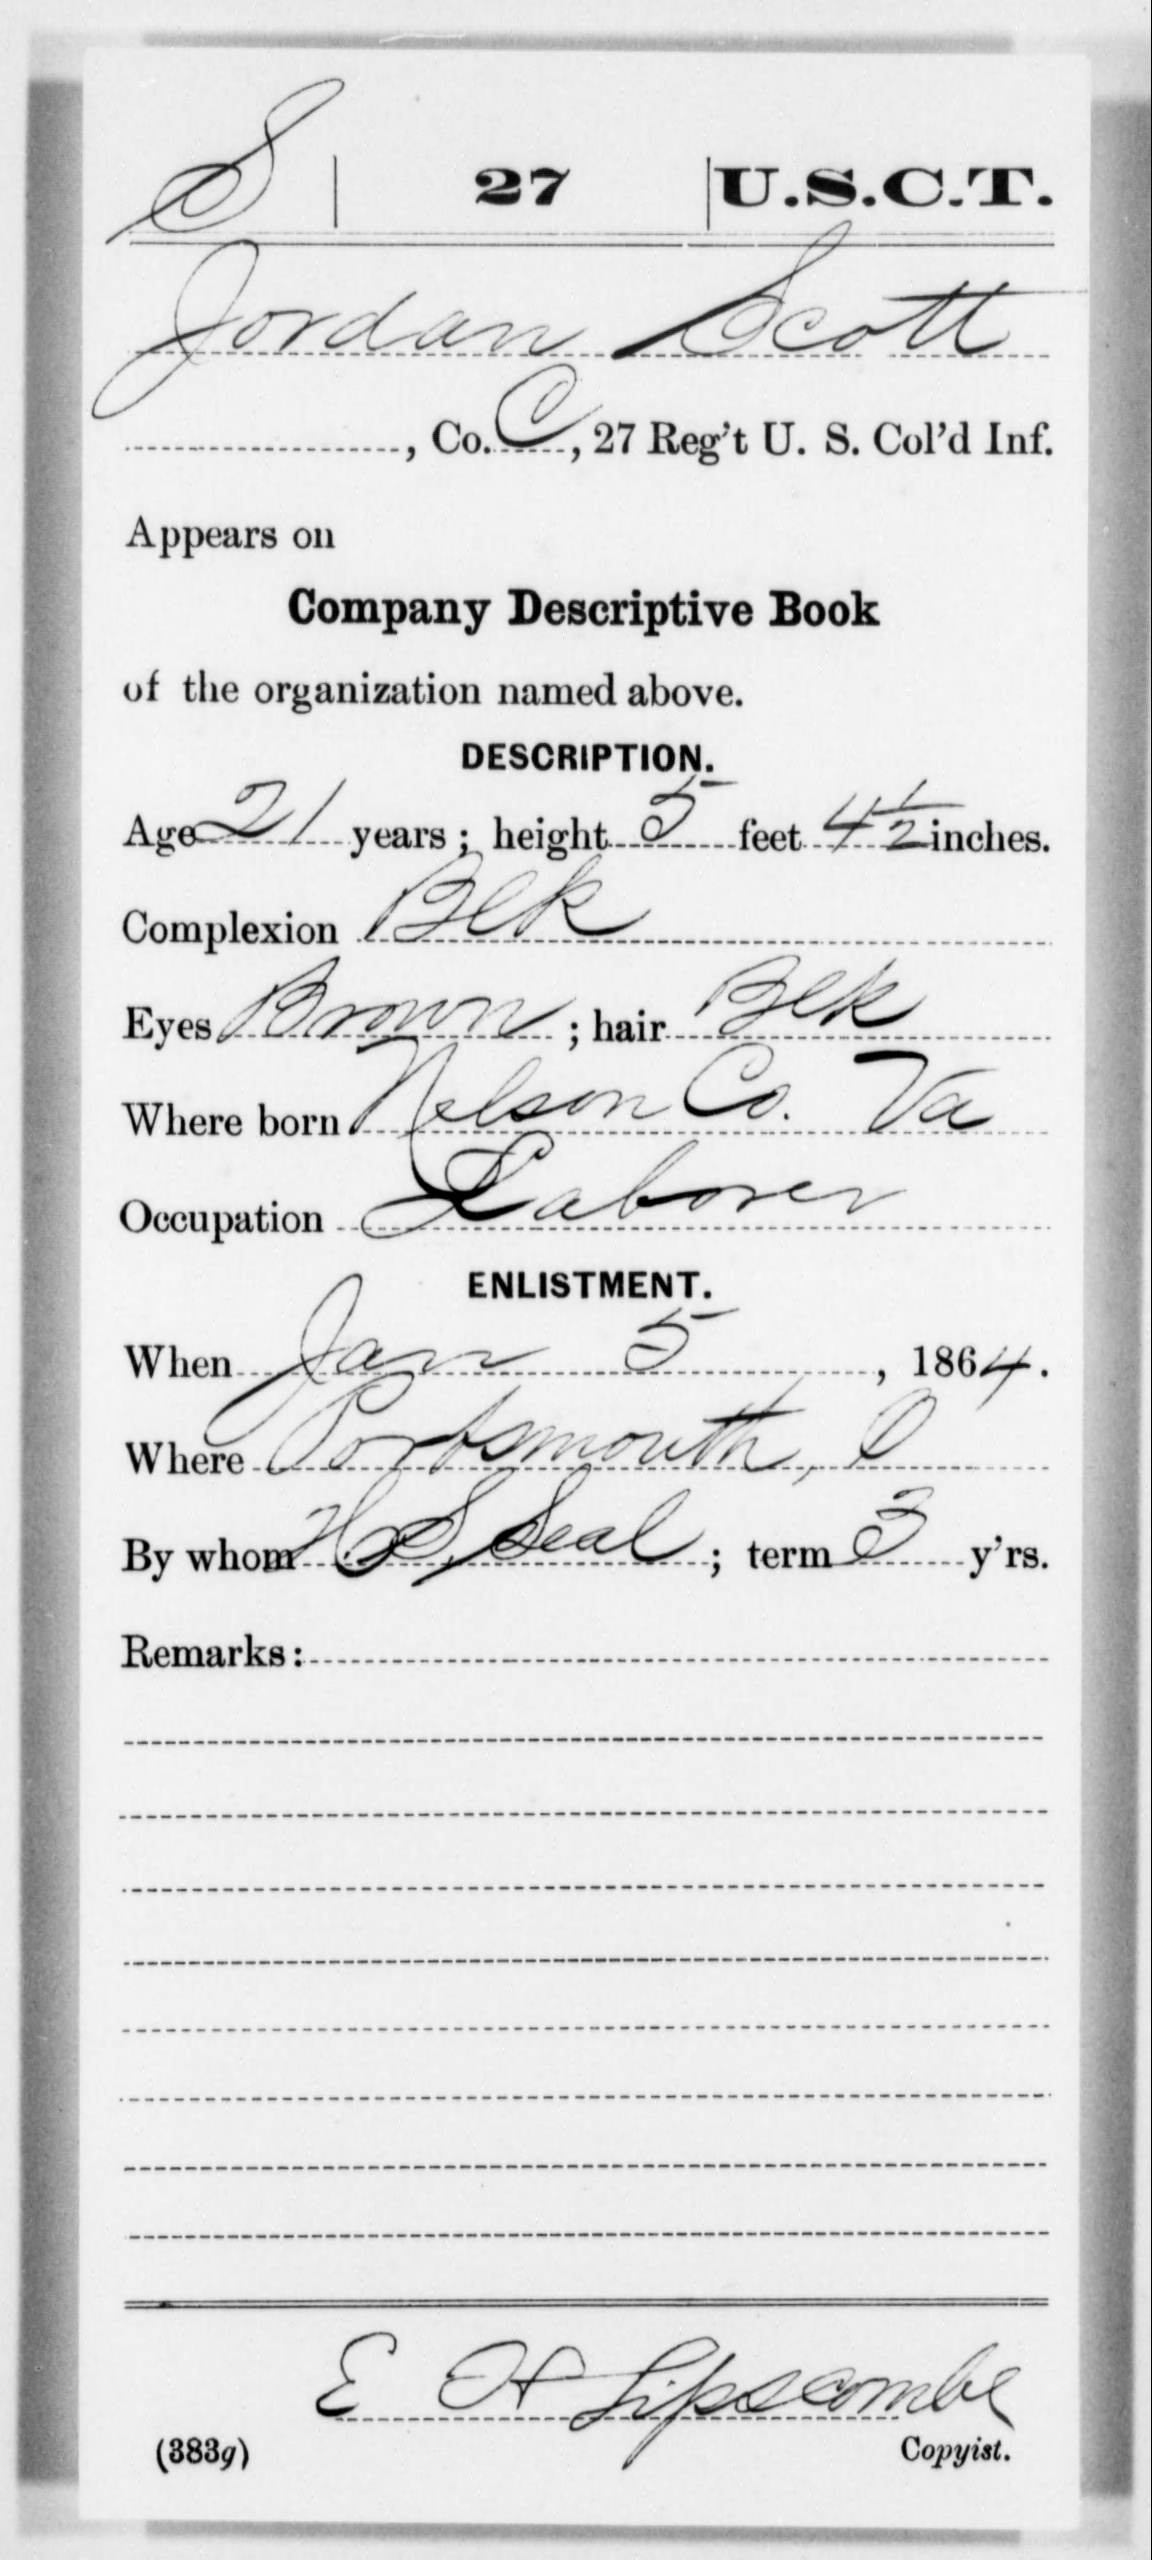 S | 27 | U.S.C.T.
Jordan Scott
, Co. C, 27 Reg't U. S. Col'd Inf.
Appears on
Company Descriptive Book
of the organization named above.
DESCRIPTION.
Age 21 years; height 5 feet 4 1/2 inches.
Complexion Blk
Eyes Brown; hair Blk
Where born Nelson Co. Va
Occupation Laborer
ENLISTMENT.
When Jan 5, 1864.
Where Portsmouth, O
By whom H S Seal; term 3 y'rs.
Remarks:
E H Lipscombe
(383g) Copyist.